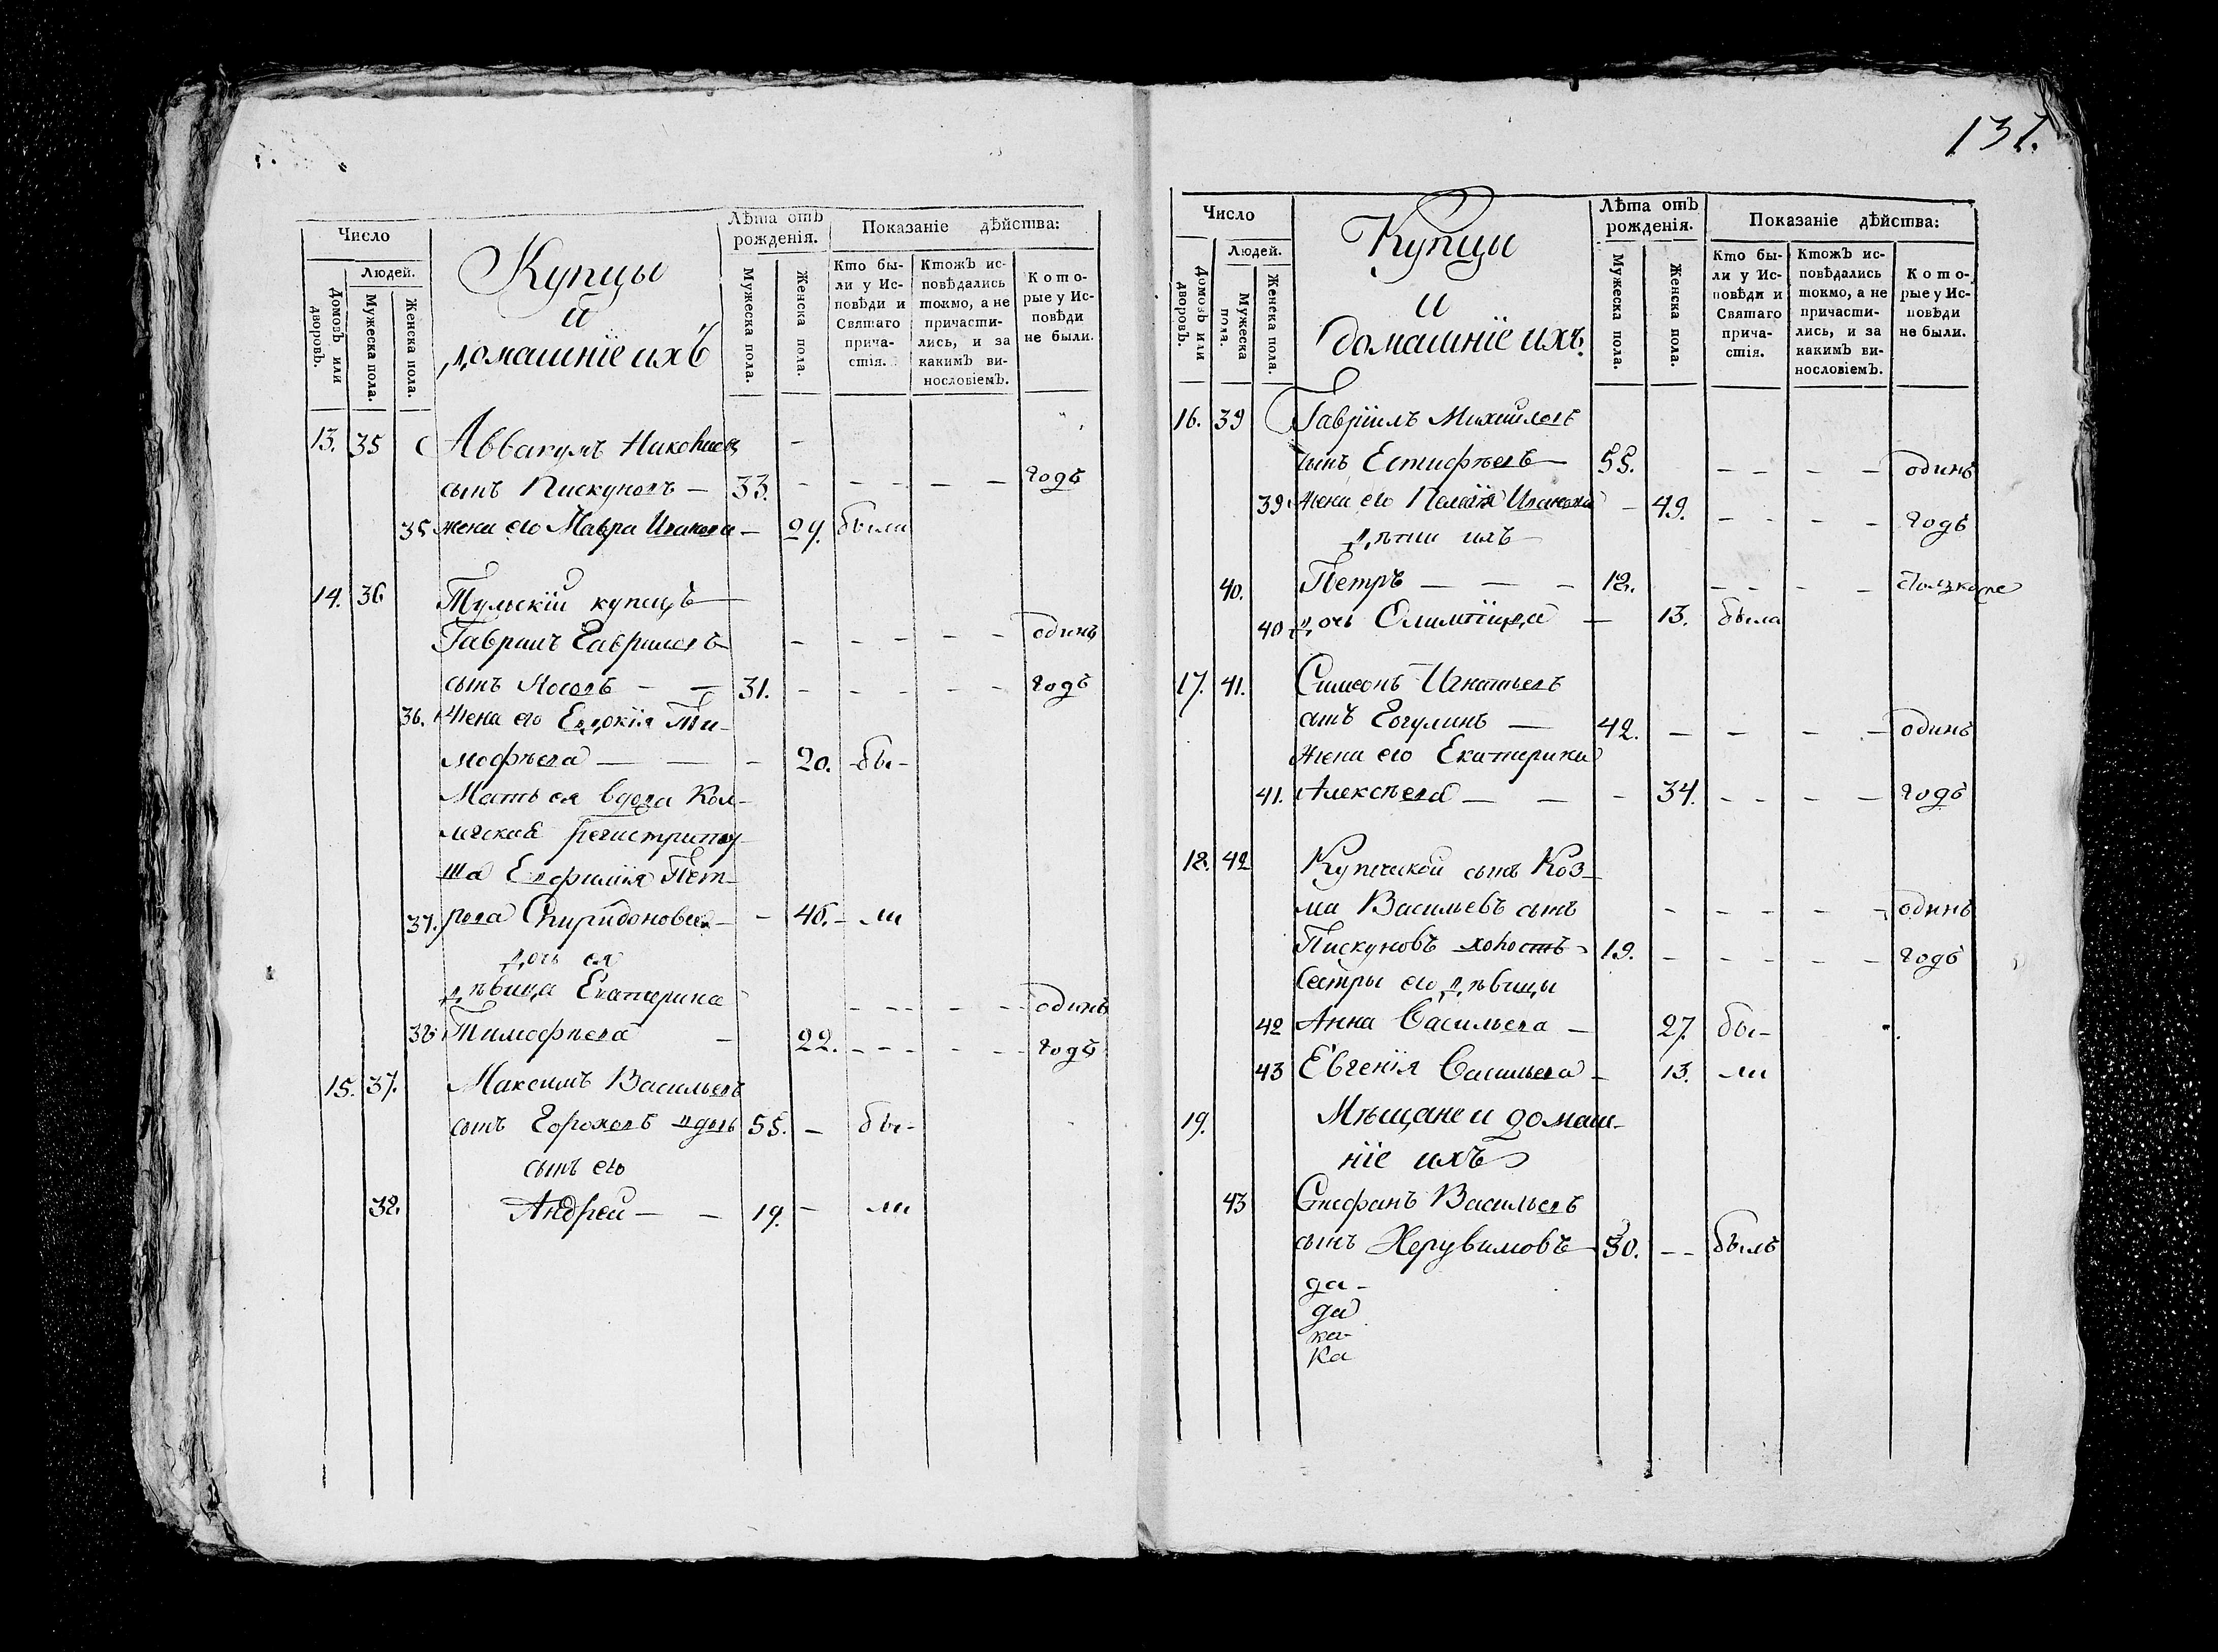 137.
Число
Людей.
Домовъ или дворовъ.
Мужеска пола.
Женска пола.
Купцы
и
домашніе ихъ
Лѣта отъ рожденія.
Мужеска пола.
Женска пола.
Показаніе дѣйства:
Кто бы-
ли у Ис-
повѣди и
Святаго
прича-
стія.
Ктожъ ис-
повѣдались
токмо, а не
причасти-
лись, и за
какимъ ви-
нословіемъ.
Кото-
рые у Ис-
повѣди
не были.
13. 35 Аввакумъ Николаевъ —
сынъ Пискуновъ — 33. — — — — — — годъ
35 жена его Мавра Иванова — 29. были
14. 36 Тульскій купецъ
Гавриилъ Гавриловъ — — — — — — одинъ
сынъ Лосовъ — — 31. — — — — — — годъ
36. Жена его Евдокія Ти-
мофѣева — — — 20. -бы-
Мать ея вдова Кол-
лежская регистратор-
ша Евфимія Пет-
37. рова Спиридоновая — — 46. — ли
дочь ея
дѣвица Екатерина — — — — — одинъ
38 Тимофѣева — 22. — — — — — годъ
15. 37. Максимъ Васильевъ
сынъ Гороховъ вдовъ 55. — бы-
сынъ его
38. Андрей — — 19. — ли
Число
Людей.
Домовъ или дворовъ.
Мужеска пола.
Женска пола.
Купцы
и
домашніе ихъ.
Лѣта отъ рожденія.
Мужеска пола.
Женска пола.
Показаніе дѣйства:
Кто бы-
ли у Ис-
повѣди и
Святаго
прича-
стія.
Ктожъ ис-
повѣдались
токмо, а не
причасти-
лись, и за
какимъ ви-
нословіемъ.
Кото-
рые у Ис-
повѣди
не были.
16. 39 Гавріилъ Михайловъ
сынъ Естифѣевъ — 55. — — — — одинъ
39 Жена его Пелагія Иванова — 49. — — — — годъ
дѣти ихъ
40. Петръ — — — 12. — — — —
40 дочь Олимпіяда — 13. была
17. 41. Симеонъ Игнатьевъ
сынъ Гогулинъ — 42. — — — — одинъ
Жена его Екатерина
41. Алексѣева — — — 34. — — — — годъ
18. 42 Купеческой сынъ Коз-
ма Васильевъ сынъ — — — — — одинъ
Пискуновъ холостъ 19. — — — — — годъ
Сестры его дѣвицы
42 Анна Васильева — 27. бы-
43 Евгенія Васильева — 13. ли
19. Мѣщане и домаш-
ніе ихъ
43 Стефанъ Васильевъ
сынъ Херувимовъ 30. — — былъ
да-
да
ка-
ка